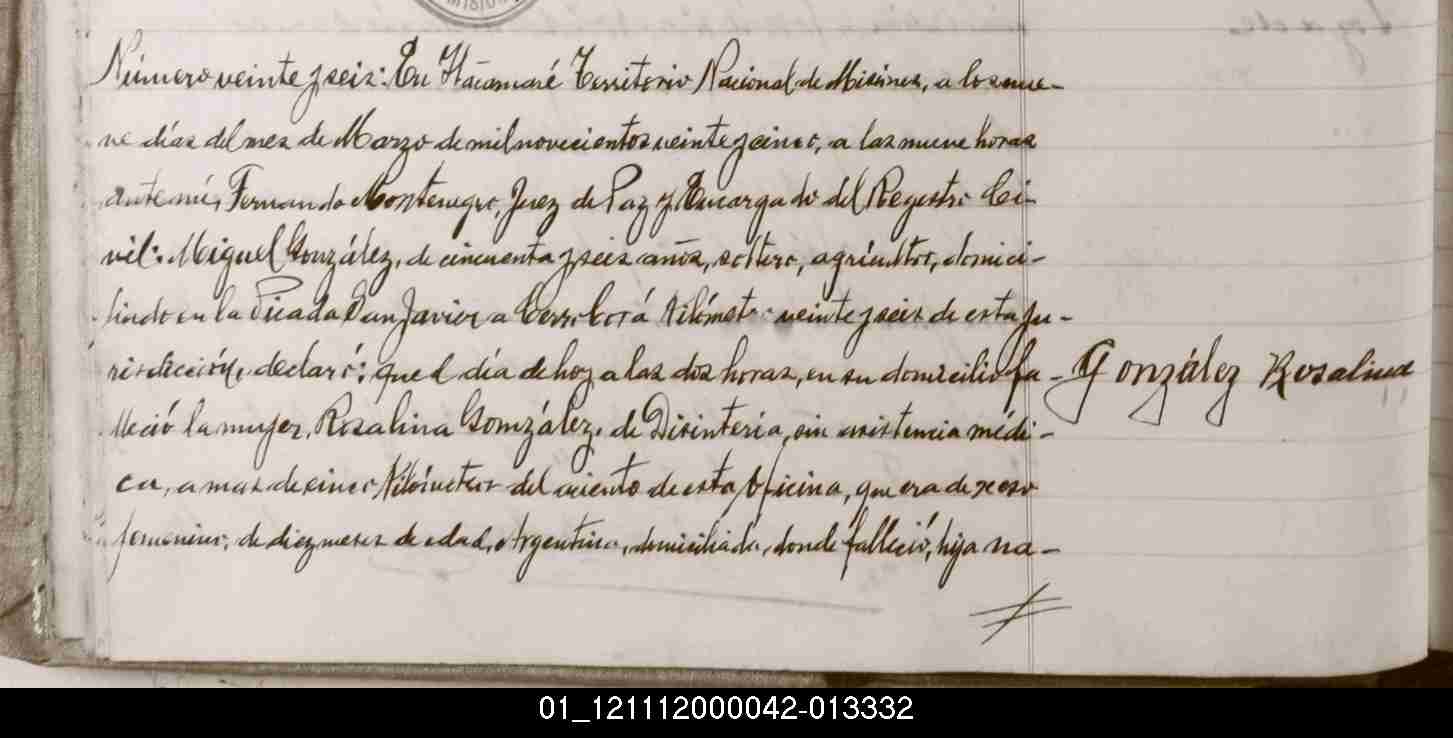 MISION
Número veinte y seis: En Itacaruaré Territorio Nacional de Misiones, a los nue-
ve días del mes de Marzo de mil novecientos veinte y cinco, a las nueve horas
ante mí, Fernando Montenegro, Juez de Paz y Encargado del Registro Ci-
vil: Miguel González, de cincuenta y seis años, soltero, agricultor, domici-
liado en la Picada San Javier a Cerro Corá Kilómetro veinte y seis de esta ju-
risdicción, declaró: que el día de hoy a las dos horas, en su domicilio fa-
lleció la mujer, Rosalina González, de Disinteria, sin asistencia médi-
ca, a mas de cinco Kilómetros del asiento de esta Oficina, que era de sexo
femenino, de diez meses de edad, Argentina, domiciliada, donde falleció, hija na-
González Rosalina
01_121112000042-013332